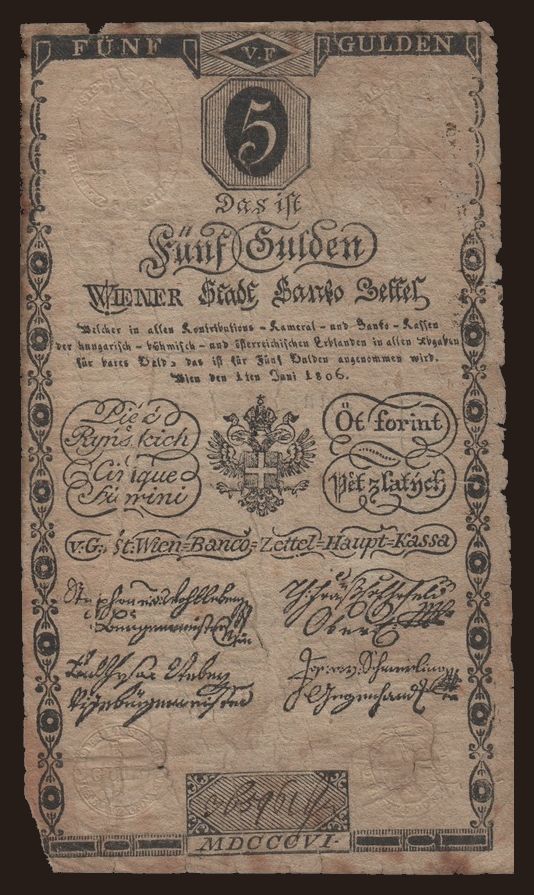 FÜNF V.F GULDEN
5
Das ist
Fünf Gulden
WIENER Stadt Banko Zettel,
Welcher in allen Kontributions - Kameral - und Banko - Kassen
der hungarisch - böhmisch - und österreichischen Erblanden in allen Abgaben
für bares Geld, das ist für Fünf Gulden angenommen wird.
Wien den 1ten Juni 1806.
Pięć
Ryńskich
Öt forint
Cinque
Fiorini
Pět zlatých
v: G: St: Wien=Banco=Zettel=Haupt=Kassa
Stephan v: Wohlleben
Burgermeister
Obere
Gegenhandl
MDCCCVI.